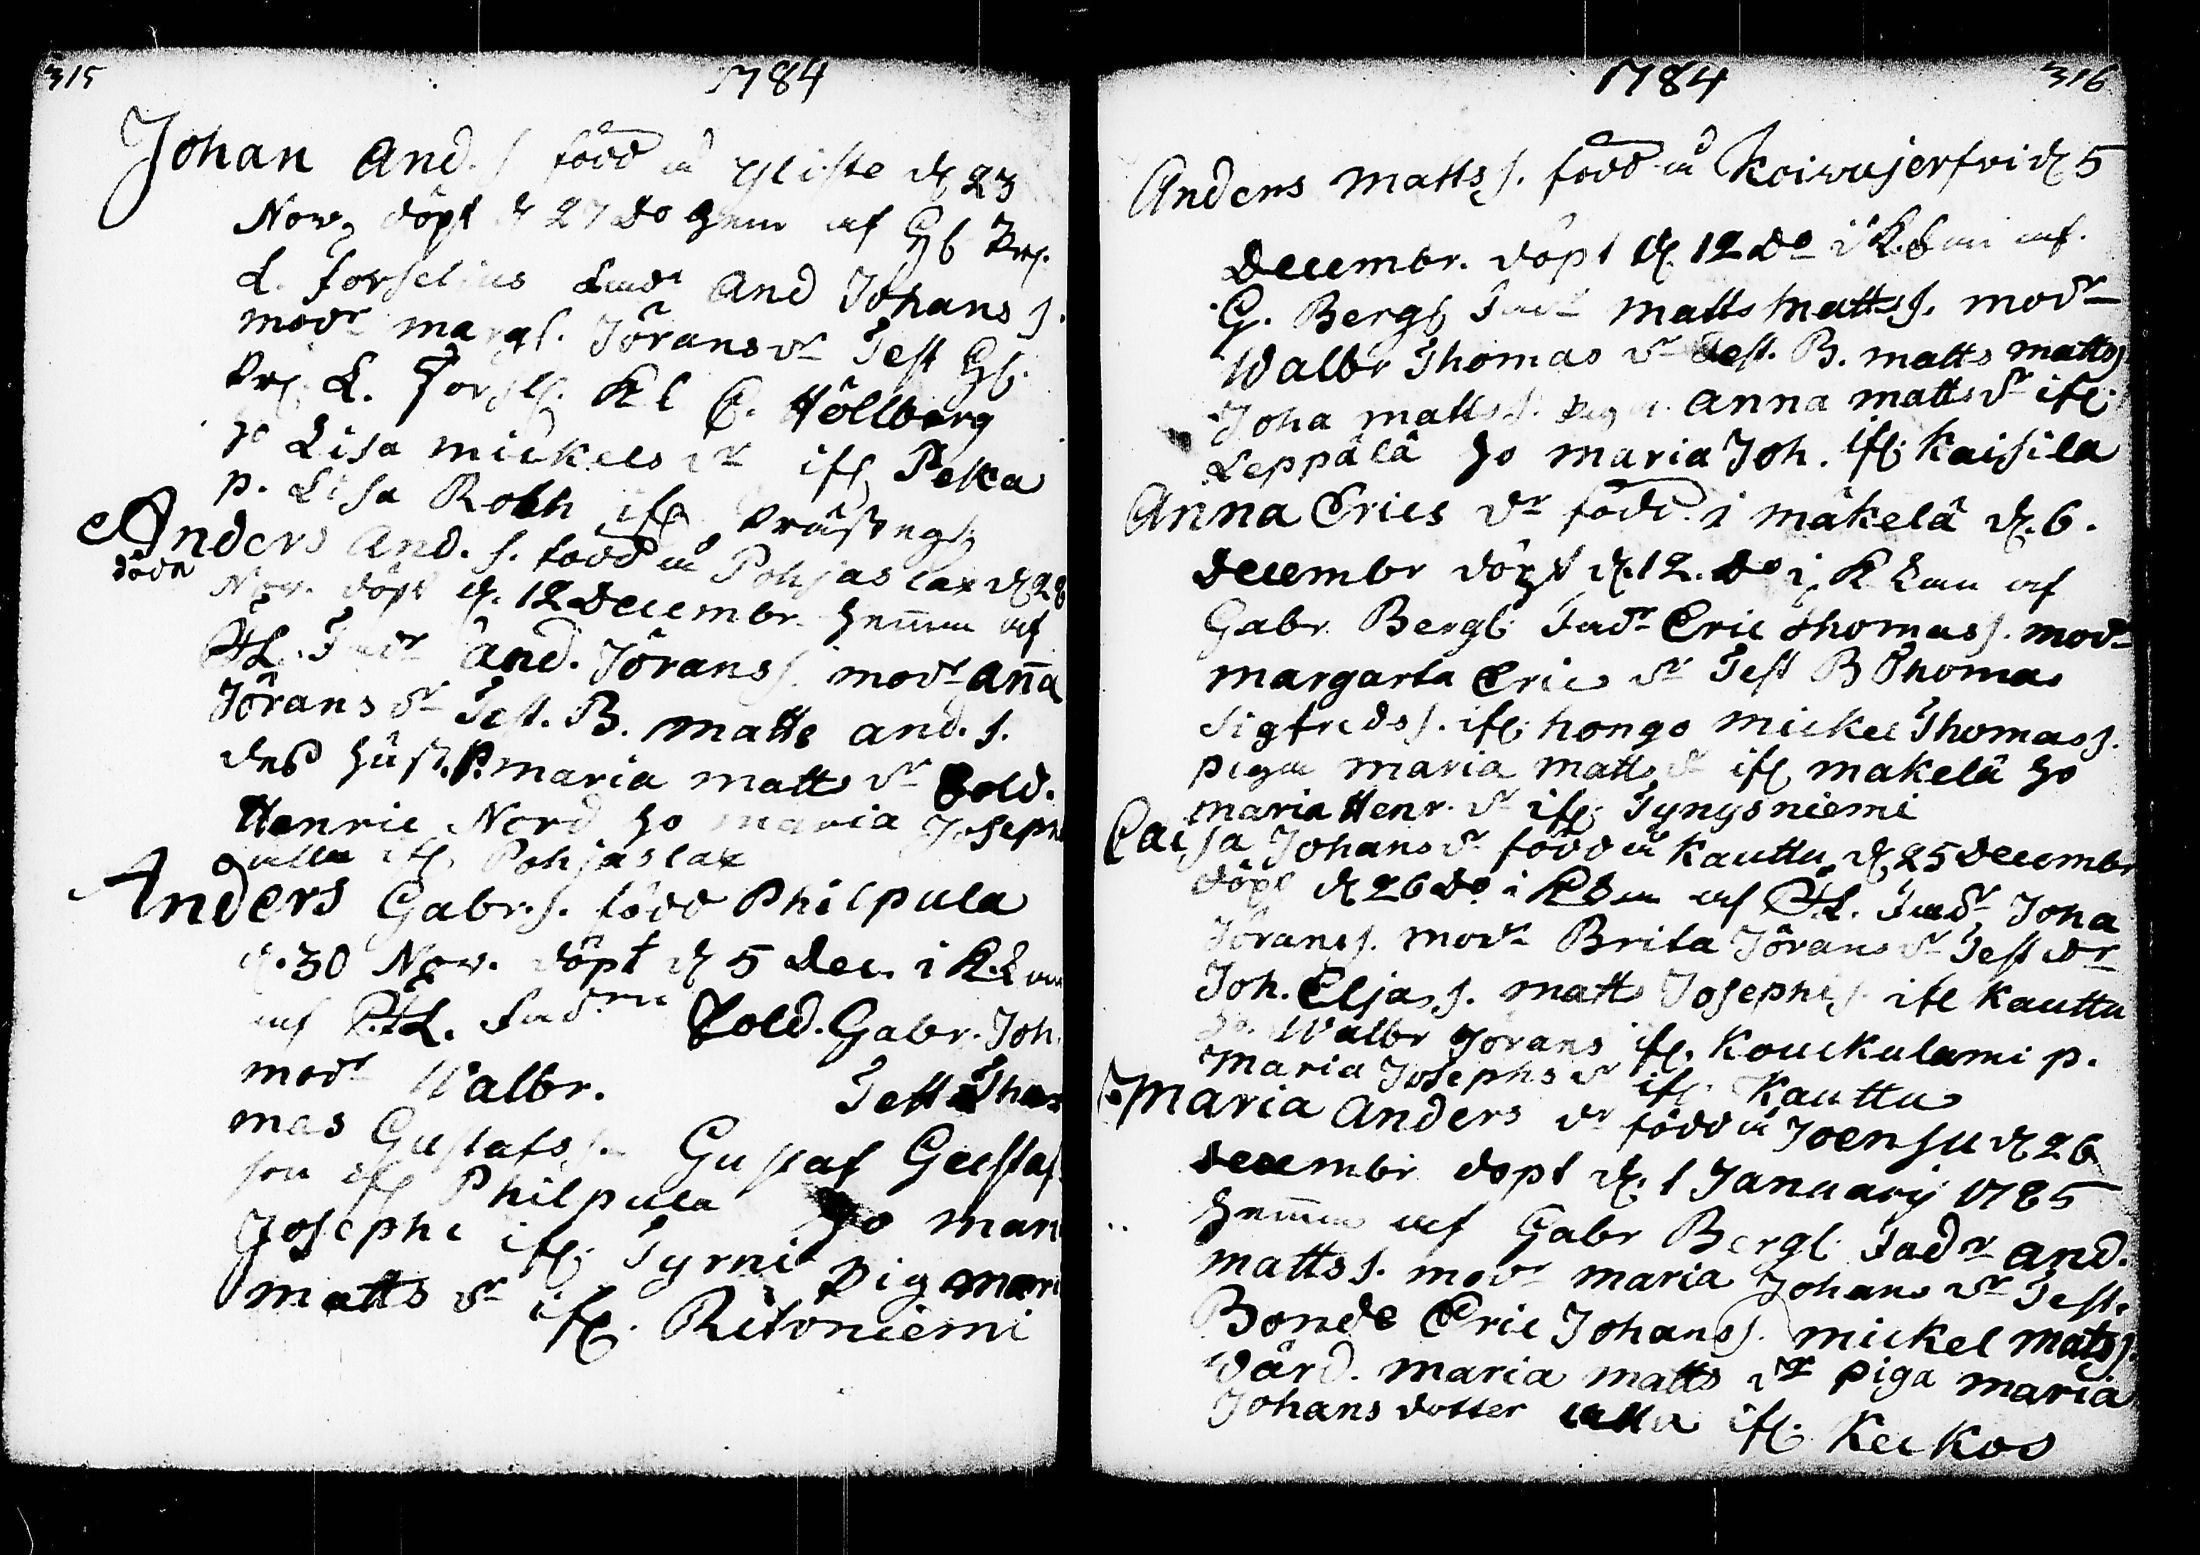 315
1784
Johan And. s född i Yliste d 23
Nov. döpt d 27 do hem af
L. Forselius Fadr And Johans s.
modr Margt. Jörans dr Test
L. Forsel. Kl C. Höllberg
ho Lisa Mickels dr ifr Peka
p. Lisa Roth ifr Prästng
Anders And. s. född i Pohjaslax d 28
döda
Nov. döpt d. 12 Decembr. hemma af
Fadr And. Jörans s. modr Anna
Jörans dr Test. B. Matts And. s.
dess hust. P. Maria Matts dr Sold.
Henric Nord ho Maria Joseph
alla ifr Pohjaslax
Anders Gabr. s. född Philpula
d. 30 Nov. döpt d 5 Dec. i K.
af Fadren Sold. Gabr. Joh.
modr Walbr. Test Tho
mas Gustafs s. Gustaf Gustaf
son ifr Philpula ho Mari
Josephs ifr Tyrni Pig Mari
Matts dr ifr. Ritoniemi
1784
316
Anders Matts s. född i Koiwujerfvi d 5
Decembr. döpt d. 12 do i K. af.
G. Bergl Fadr Matts Matts s. modr
Walbr Thomas dr Test. B. Matts Matts s
Joha Matts s. Anna Matts dr ifr.
Leppälä ho Maria Joh. ifr Kaisila
Anna Erics dr född i Mäkelä d. 6.
Decembr döpt d. 12. do i K af
Gabr. Bergl: Fadr Eric Thomas s. modr
Margarta Erics dr Test B Thomas
Sigfreds s. ifr hongo Mickel Thomas s.
Piga Maria Matts dr ifr Makelä ho
Maria Henr. dr ifr Tynysniemi
Caisa Johans dr född i Kauttu d. 25 Decembr
döpt d 26 do i K af Fadr Joha
Jörans s. modr Brita Jörans dr Test dr
Joh. Eljas s. Matts Josephs s ifr Kauttu
ho. Walbr Jörans ifr. Kouckulami p.
Maria Josephs dr ifr Kauttu
Maria Anders dr född i Joensu d 26
Decembr döpt d. 1 January 1785
hemma af Gabr Bergl: Fadr And.
Matts s. modr Maria Johans dr Test.
Bonde Eric Johans s. Mickel Mats s.
Wärd. Maria Matts dr Piga Maria
Johans dotter alla ifr. Keckos